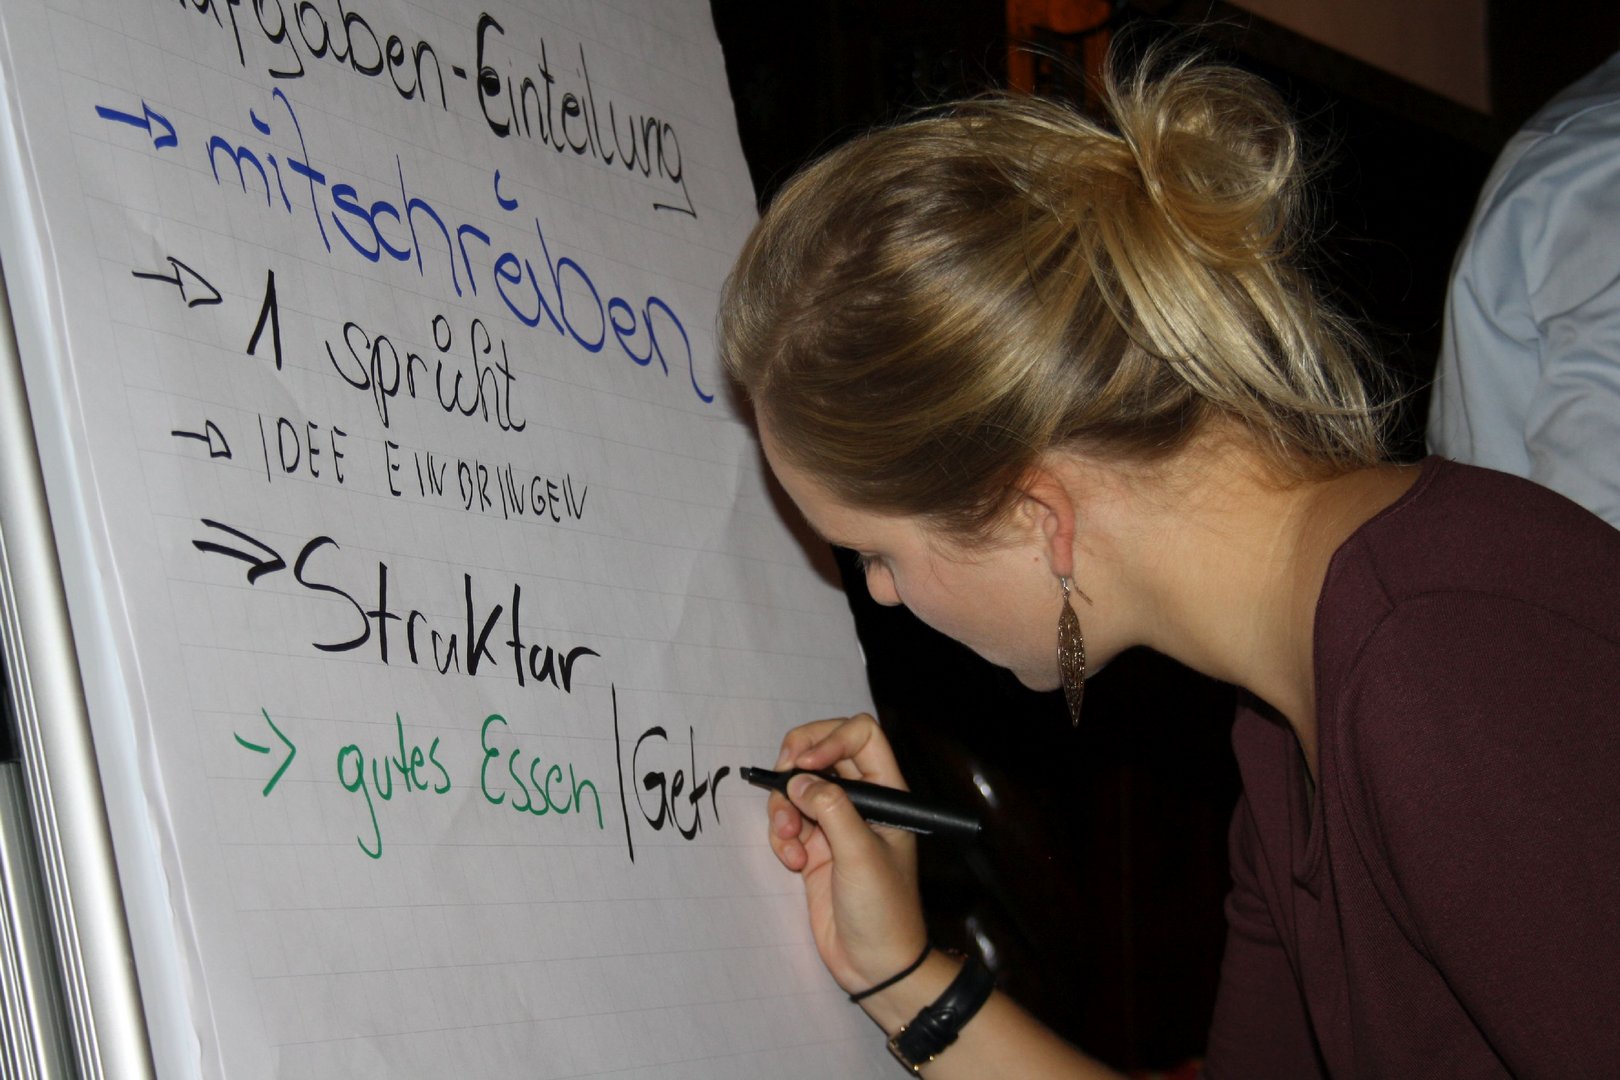 Aufgaben-Einteilung
→ mitschreiben
→ 1 spricht
→ IDEE EINBRINGEN
⇒ Struktur
→ gutes Essen | Getr